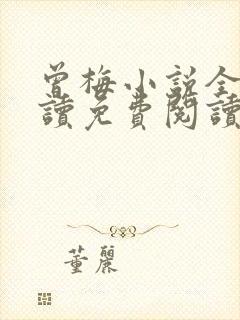 曾梅小説全
讀免費閱讀
董麗